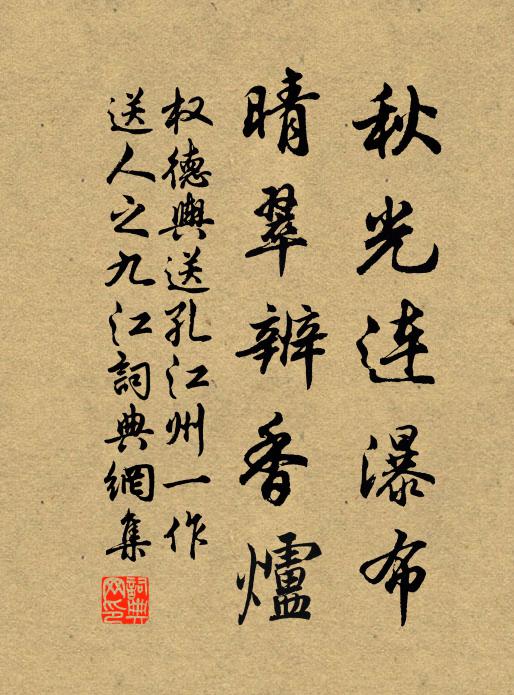 秋光连瀑布
晴翠辨香爐
权德輿送孔江州一作
送人之九江詞典網集
詞典网印